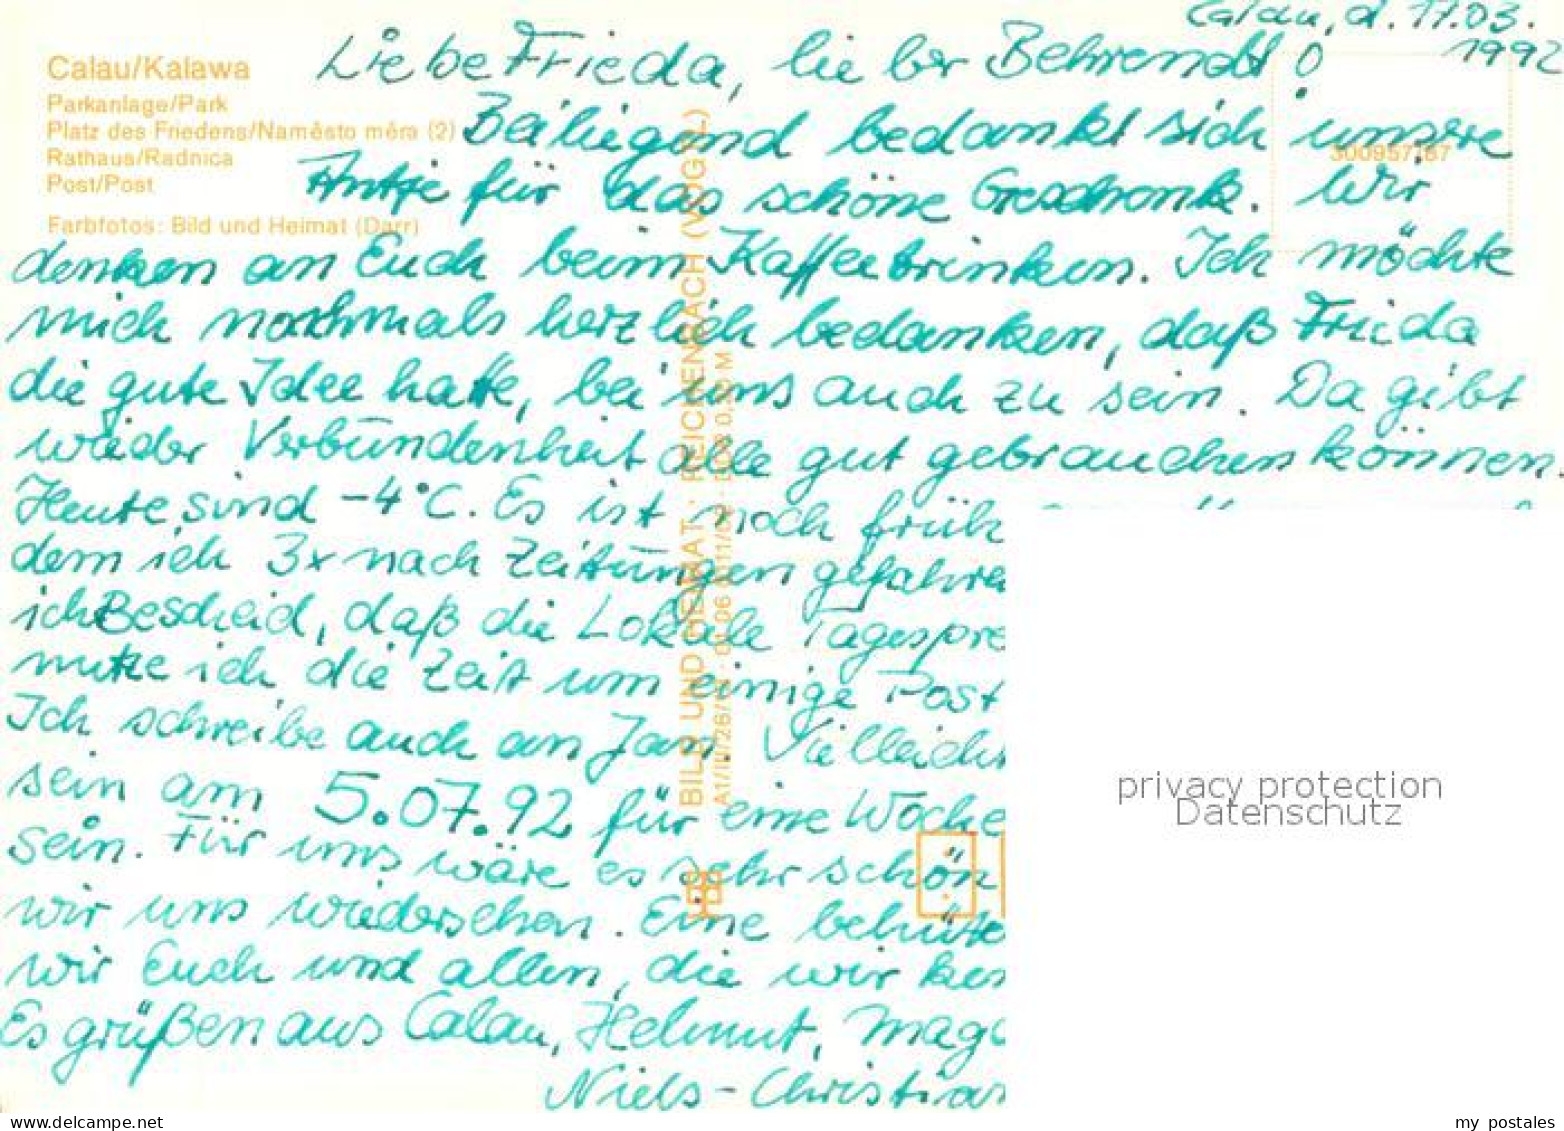 Calau, d. 17.03.
1992
Calau/Kalawa
Parkanlage/Park
Platz des Friedens/Naměsto měra (2)
Rathaus/Radnica
Post/Post
Farbfotos: Bild und Heimat (Darr)
Liebe Frieda, lieber Behrendt!
Beiliegend bedankt sich unsere
Antje für das schöne Geschenk. Wir
denken an Euch beim Kaffeetrinken. Ich möchte
mich nochmals herzlich bedanken, daß Frieda
die gute Idee hatte, bei uns auch zu sein. Da gibt
wieder Verbundenheit alle gut gebrauchen können.
Heute sind -4°C. Es ist noch früh
dem ich 3x nach Zeitungen gefahre
ich Bescheid, daß die Lokale Tagespre
nutze ich die Zeit um einige Post
Ich schreibe auch an Jan. Vielleich
sein am 5.07.92 für eine Woche
sein. Für uns wäre es sehr schön
wir uns wiedersehen. Eine behüte
wir Euch und allen, die wir
Es grüßen aus Calau, Helmut, Mag
Niels-Christia
BILD UND HEIMAT · REICHENBACH (VOGTL)
300957/87
privacy protection
Datenschutz
delcampe.net
my_postales